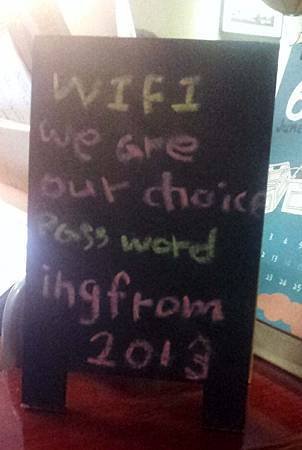 WIFI
we are
our choice
Pass word
ingfrom
2013